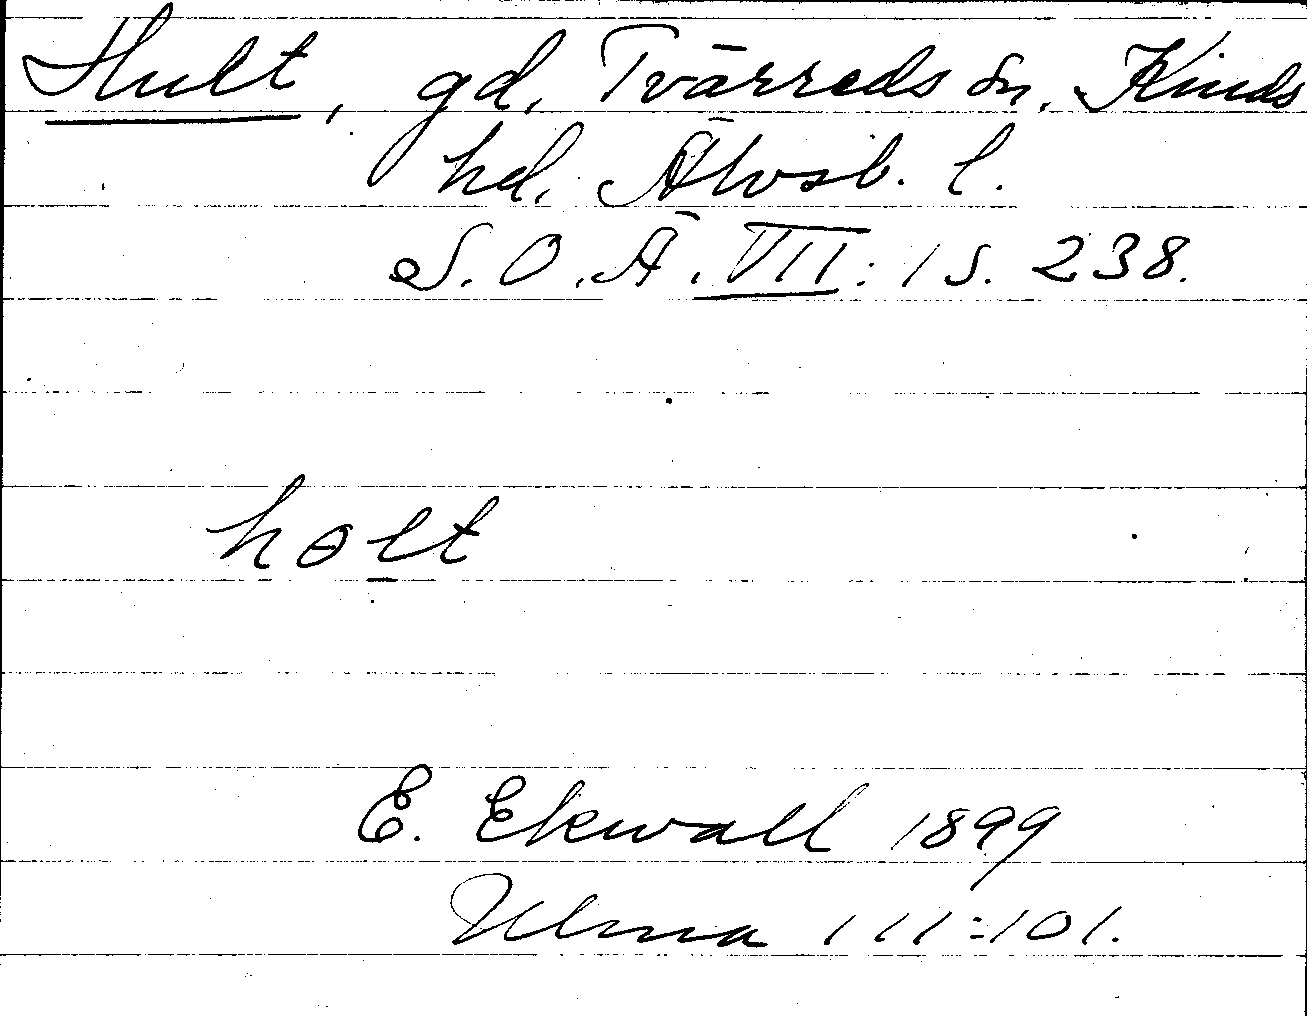 Hult, gd, Tvärreds sn, Kinds
hd, Älvsb. l.
S.O.Ä. VII: 1 s. 238.
hɵlt
E. Ekwall 1899
Ulma 111:101.